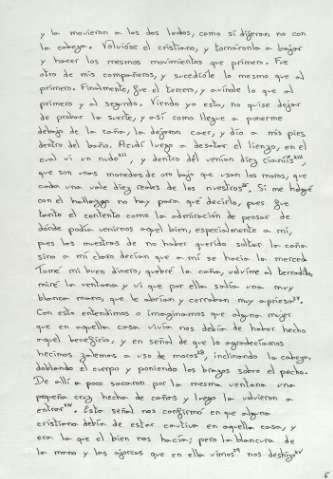 y la movieron a los dos lados, como si dijeran no con
la cabeza. Volvióse el cristiano, y tornáronla a bajar
y hacer los mesmos movimientos que primero. Fue
otro de mis compañeros, y sucedióle lo mesmo que al
primero. Finalmente, fue el tercero, y avínole lo que al
primero y al segundo. Viendo yo esto, no quise dejar
de probar la suerte, y así como llegué a ponerme
debajo de la caña, la dejaron caer, y dio a mis pies
dentro del baño. Acudí luego a desatar el lienzo, en el
cual vi un nudo, y dentro dél venían diez cianiís,
que son unas monedas de oro bajo que usan los moros, que
cada una vale diez reales de los nuestros. Si me holgé
con el hallazgo no hay para qué decirlo, pues fue
tanto el contento como la admiración de pensar de
dónde podía venirnos aquel bien, especialmente a mí,
pues las muestras de no haber querido soltar la caña
sino a mí claro decían que a mí se hacía la merced
Tomé mi buen dinero, quebré la caña, volvíme al terradillo
miré la ventana y vi que por ella salía una muy
blanca mano, que le abrían y cerraban muy apriesa.
Con esto entendimos o imaginamos que alguna mujer
que en aquella casa vivía nos debía de haber hecho
aquel beneficio, y en señal de que lo agradecíamos
hecimos zalemas a uso de moros, inclinando la cabeza,
doblando el cuerpo y poniendo los brazos sobre el pecho.
De allí a poco sacaron por la mesma ventana una
pequeña cruz hecha de cañas y luego la volvieron a
entrar. Esta señal nos confirmó en que alguna
cristiana debía de estar cautiva en aquella casa, y
era la que el bien nos hacía; pero la blancura de
la mano y las ajorcas que en ella vimos nos deshizo
6